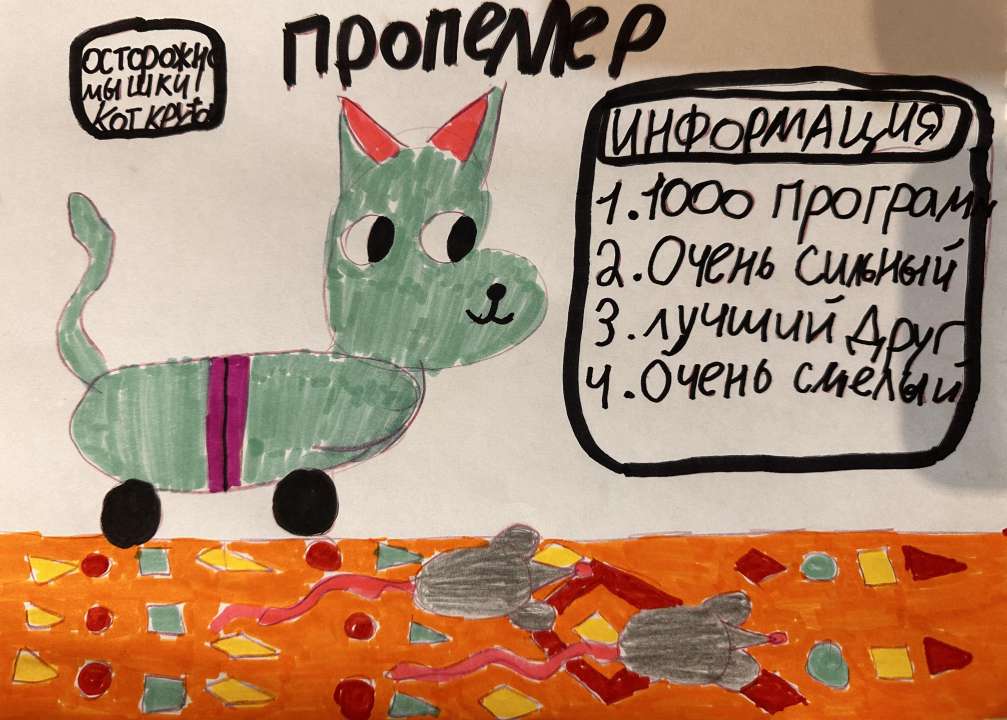 пропеллер
ОСТОРОЖНО
МЫШКИ!
КОТ
ИНФОРМАЦИЯ
1.1000 програм
2.Очень сильный
3.лучший Друг
4.Очень смелый